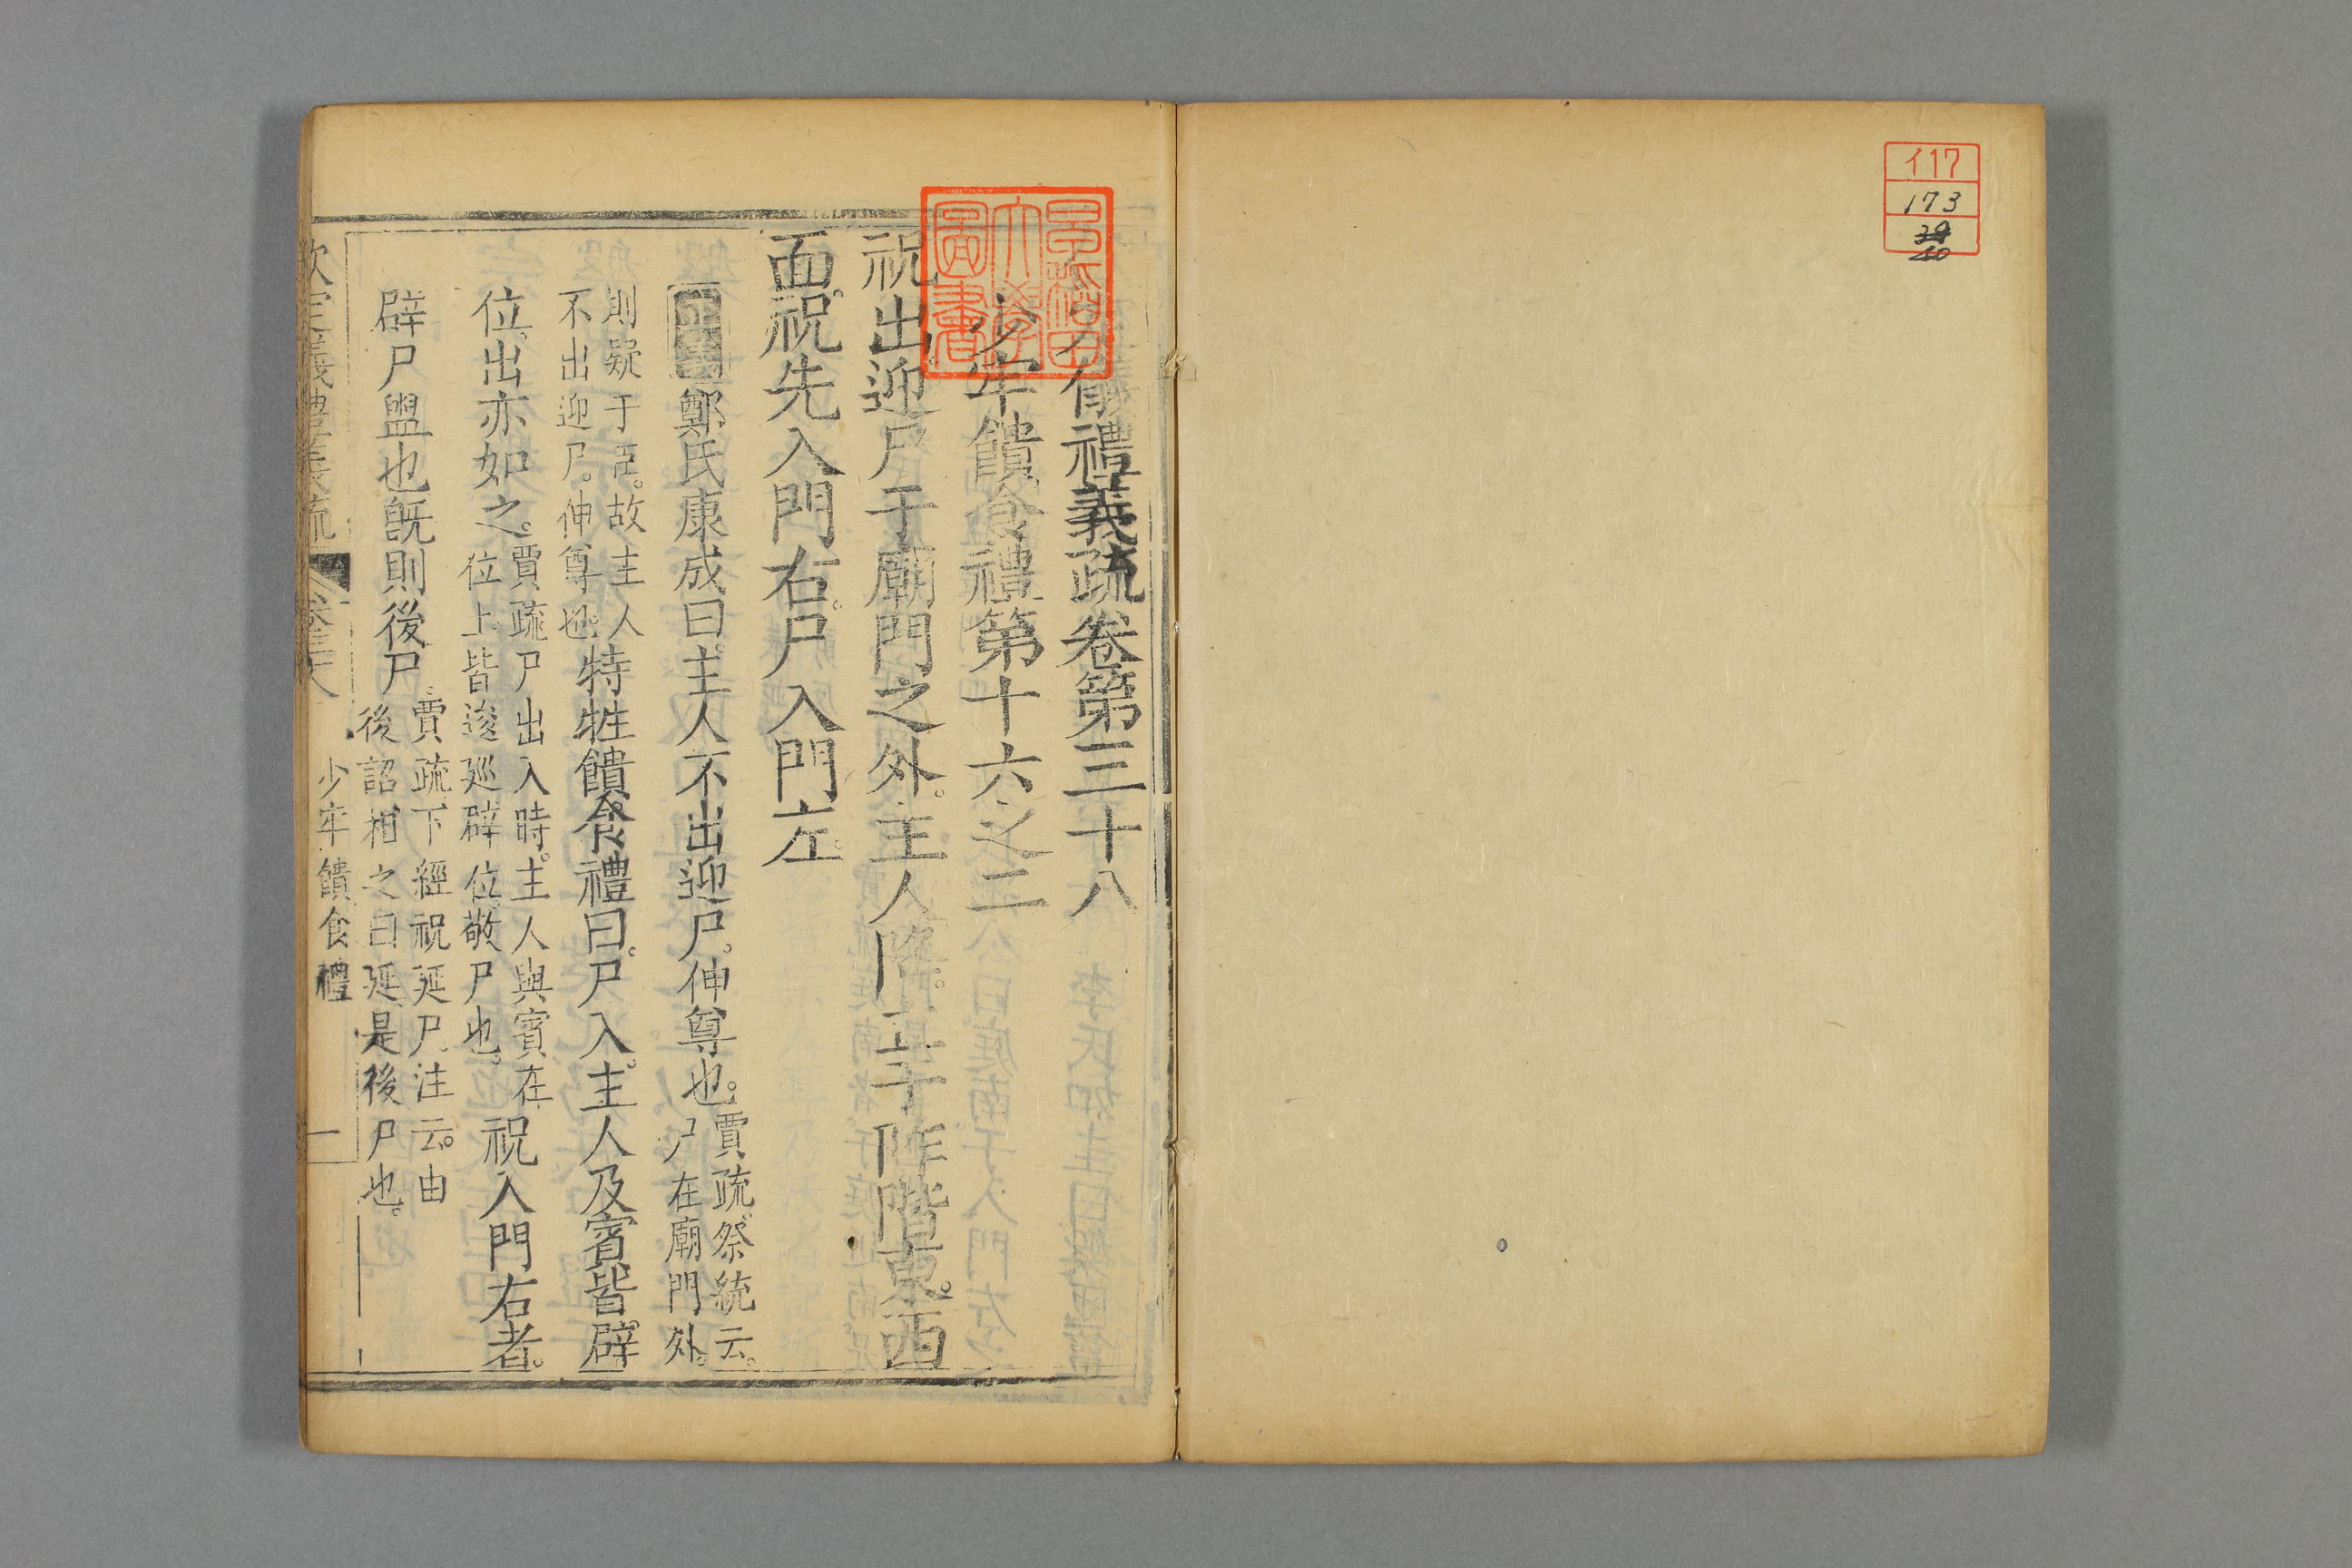 イ17
173
40
早稻田
大學
圖書
儀禮義疏卷第三十八
少牢饋食禮第十六之二
祝出迎尸于廟門之外。主人降。立于阼階東。西
面。祝先入門右。尸入門左。
正義鄭氏康成曰。主人不出迎尸。伸尊也。
賈疏。祭統云。
尸在廟門外。
則疑于臣。故主人
不出迎尸。伸尊也。
特牲饋食禮曰。尸入。主人及賓皆辟
位。出亦如之。
賈疏尸出入時。主人與賓在
位上皆逡巡辟位。敬尸也。
祝入門右者。
辟尸盥也。旣則後尸。
賈疏下經祝延尸。注云。由
後詔相之曰延。是後尸也。
欽定儀禮義疏
卷三十八
少牢饋食禮
一